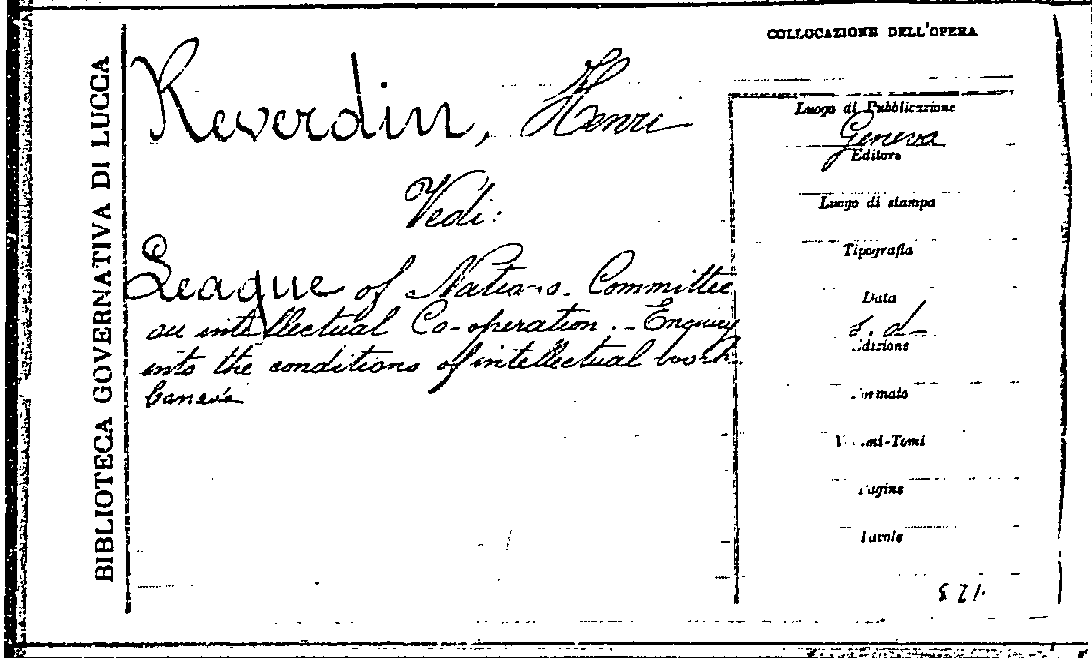 BIBLIOTECA GOVERNATIVA DI LUCCA
Reverdin, Henri
Vedi:
League of Nations. Committee
on intellectual Co-operation. - Enquiry
into the conditions of intellectual work.
COLLOCAZIONE DELL'OPERA
Luogo di Pubblicazione
Geneva
Editore
Luogo di stampa
Tipografia
Data
s. d.
Edizione
Formato
Volumi-Tomi
Pagine
Tavole